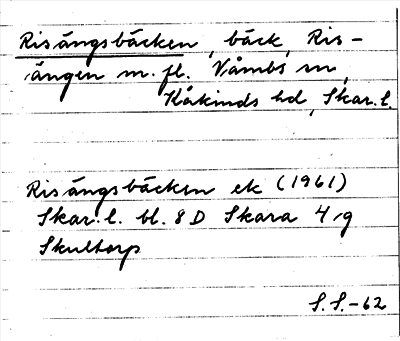 Risängsbäcken, bäck, Ris-
ängen m. fl. Våmbs sn,
Kåkinds hd, Skar. l.
Risängsbäcken ek (1961)
Skar. l. bl. 8 D Skara 4 g
Skultorp
S. S. -62